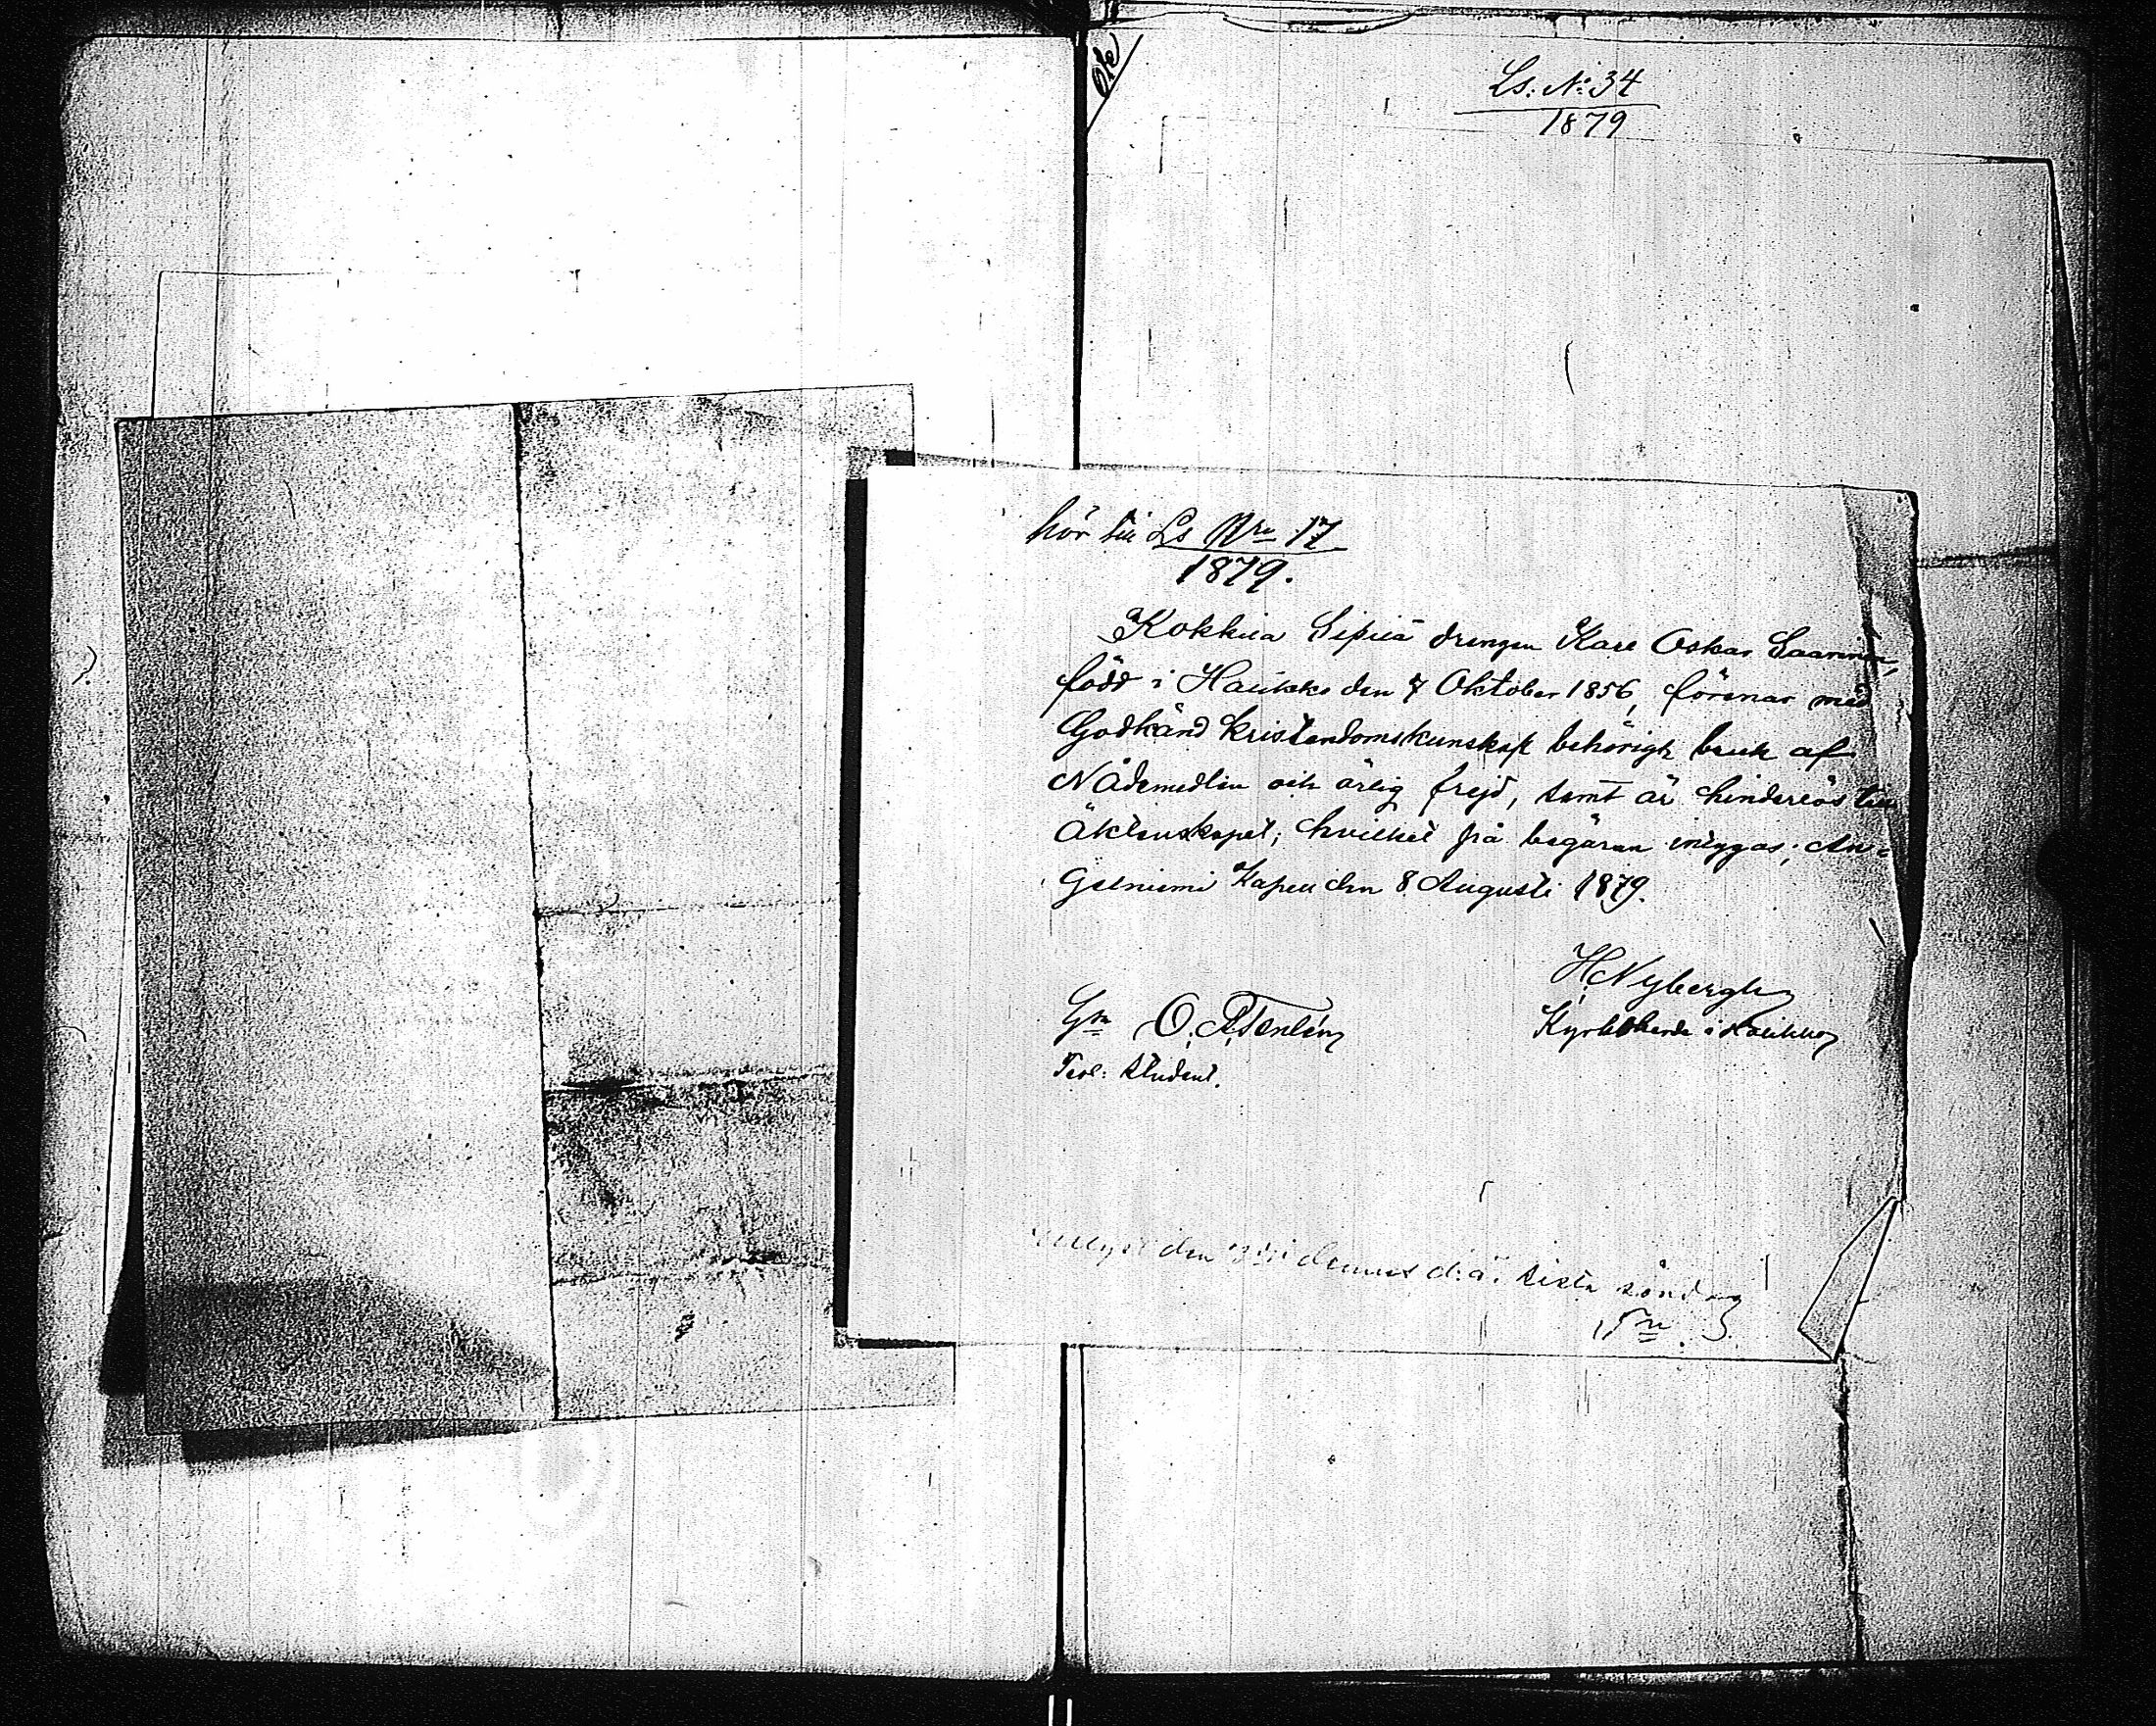 Ls. No: 34
1879
hör till Ls Nro 17
1879.
Kokkila Sipilä drengen Karl Oskar Saarinen,
född i Halikko den 7 Oktober 1856, förenar med
Godkänd kristendomskunskap behörigt bruk af
Nådemedlen och ärlig frejd, samt är hinderlös till
Äktenskapet; hvilket på begäran intygas; An-
gelniemi Kapell den 8 Augusti 1879.
H. Nybergh
Kyrkoherde i Halikko
Gm O. A.
Teol: Student.
den dennes d: ä. sista söndag